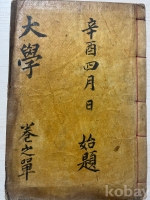 辛酉四月 日 始題
大學
卷之單
kobay